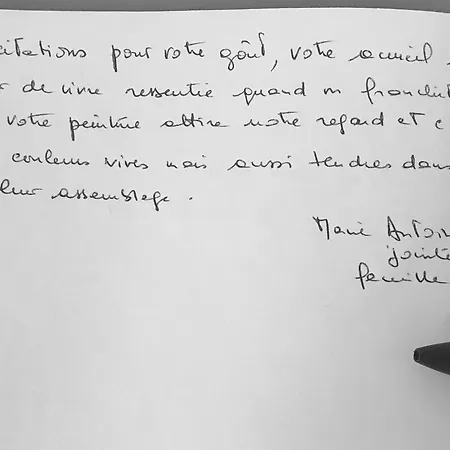 citations pour votre goût, votre accueil
de vivre ressentie quand on franchit
votre peinture attire notre regard et c
couleurs vives mais aussi tendres dans
leur assemblage.
Marie Antoin
jointe
famille